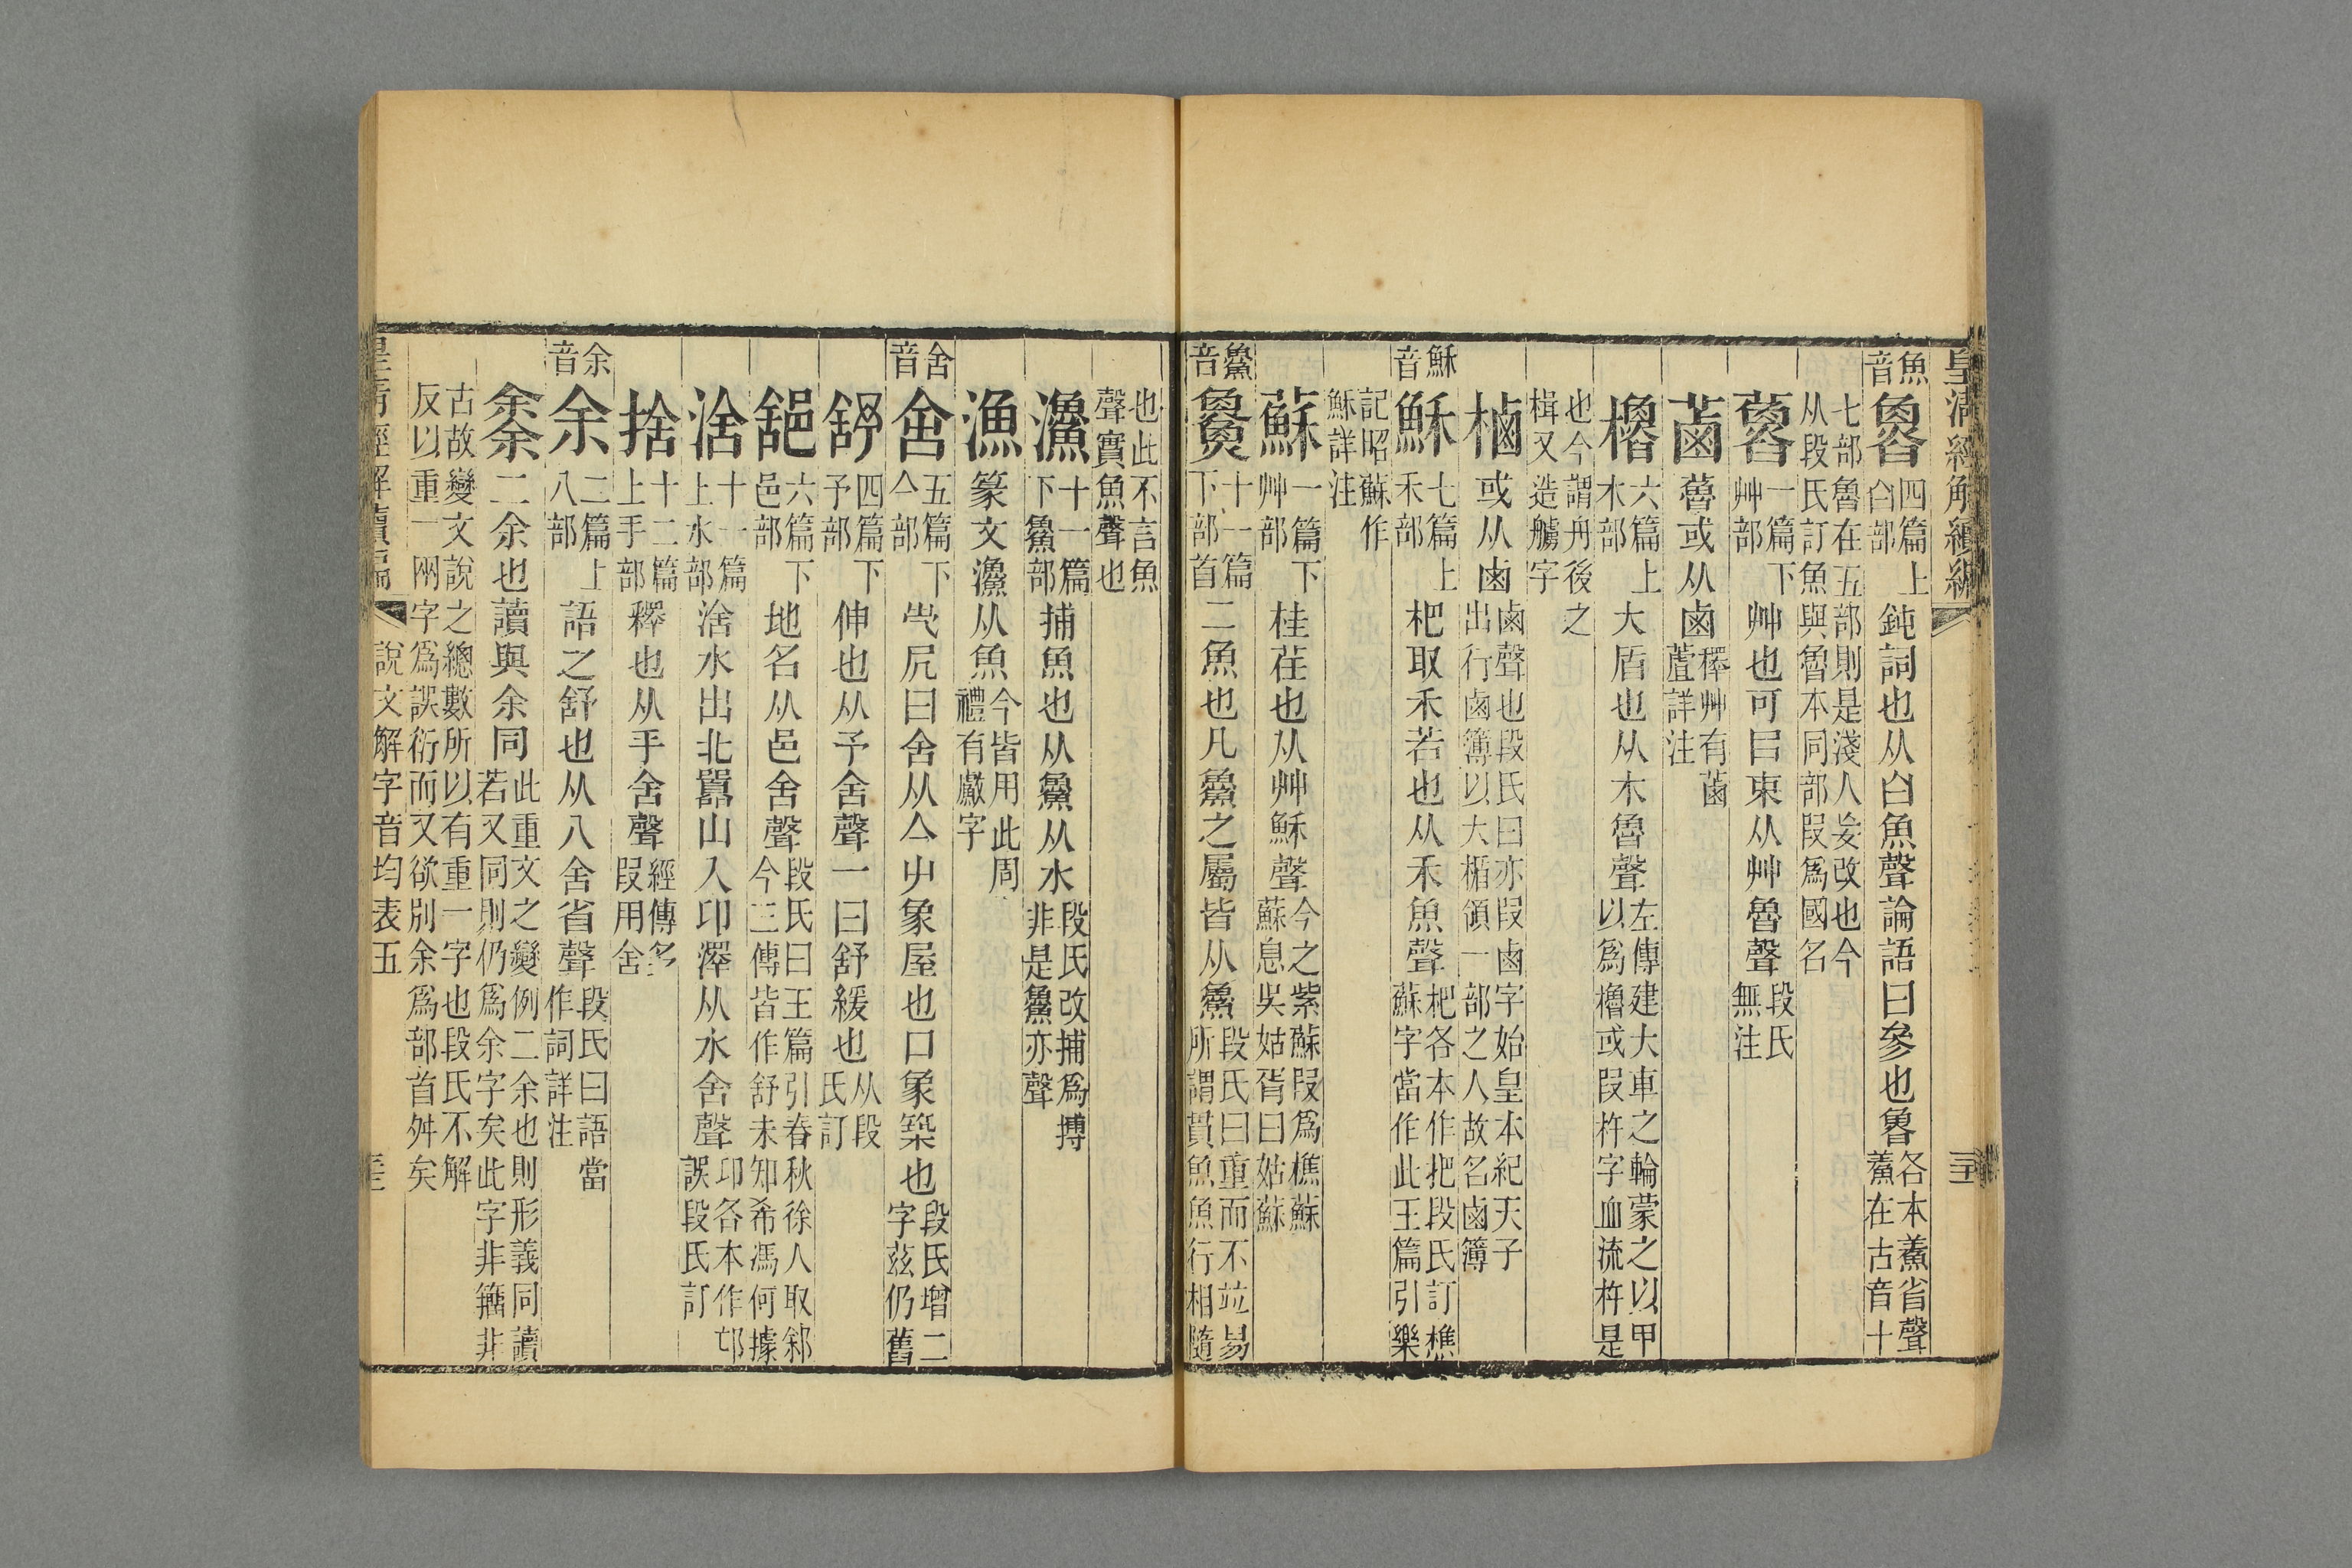 皇清經解續編
魚音 魯 四篇上白部 鈍詞也从白魚聲論語曰參也魯 各本鮺省聲鮺在古音十
七部魯在五部則是淺人妄改也今从段氏訂魚與魯本同部叚爲國名
蘆 一篇下艸部 艸也可㠯束从艸魯聲 段氏無注
蓾 蘆或从鹵 檡艸有蓾蔖詳注
櫓 六篇上木部 大盾也从木魯聲 左傳建大車之輪蒙之以甲以爲櫓或叚杵字血流杵是
也今謂舟後之楫又造艣字
樐 或从鹵 鹵聲也段氏曰亦叚鹵字始皇本紀天子出行鹵簿以大楯領一部之人故名鹵簿
穌音 穌 七篇上禾部 杷取禾若也从禾魚聲 杷各本作把段氏訂樵蘇字當作此王篇引樂
記昭蘇作穌詳注
蘇 一篇下艸部 桂荏也从艸穌聲 今之紫蘇叚爲樵蘇蘇息吳姑胥曰姑蘇
䲆音 䲆 十一篇下部首 二魚也凡䲆之屬皆从䲆 段氏曰重而不竝易所謂貫魚魚行相隨
也此不言魚聲實魚聲也
𩼪 十一篇下䲆部 捕魚也从䲆从水 段氏改捕爲搏非是䲆亦聲
漁 篆文𩼪从魚 今皆用此周禮有䱷字
舍音 舍 五篇下亼部 市凥曰舍从亼屮象屋也口象築也 段氏增二字茲仍舊
舒 四篇下予部 伸也从予舍聲一曰舒緩也 从段氏訂
䣄 六篇下邑部 地名从邑舍聲 段氏曰王篇引春秋徐人取䣄今三傳皆作舒未知希馮何據
涻 十一篇上水部 涻水出北嚻山入卬澤从水舍聲 卬各本作邙誤段氏訂
捨 十二篇上手部 釋也从手舍聲 經傳多叚用舍
余音 余 二篇上八部 語之舒也从八舍省聲 段氏曰語當作詞詳注
𠎳 二余也讀與余同 此重文之變例二余也則形義同讀若又同則仍爲余字矣此字非籒非
古故變文說之總數所以有重一字也段氏不解反以重一兩字爲誤衍而又欲別余爲部首舛矣
皇清經解續編 說文解字音均表五